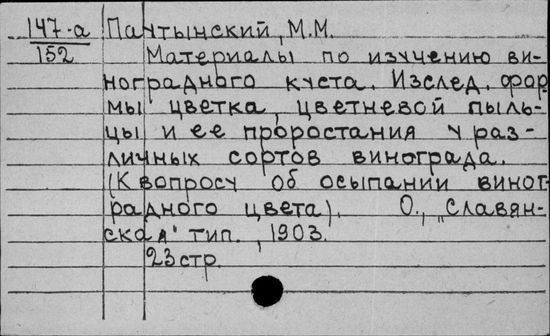 147-а Пачтынский, М.М.
152 Материалы по изучению ви-
ноградного куста. Изслед. фор
мы цветка, цветневой пыль-
цы и ее проростания у раз-
личных сортов винограда.
(К вопросу об осыпании виног-
радного цвета). О., „Славян-
ская" тип., 1903.
23 стр.